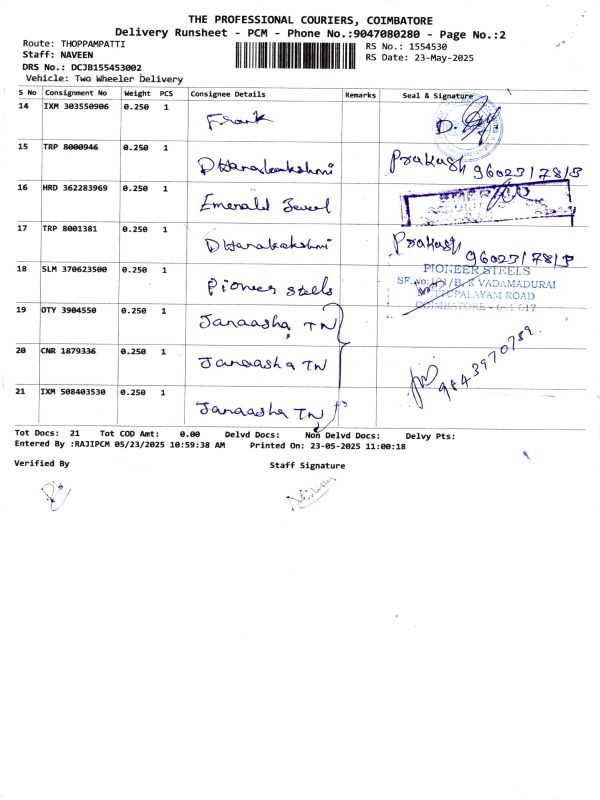 THE PROFESSIONAL COURIERS, COIMBATORE
Delivery Runsheet - PCM - Phone No.:9047080280 - Page No.:2
Route: THOPPAMPATTI
RS No.: 1554530
Staff: NAVEEN
RS Date: 23-May-2025
DRS No.: DCJB155453002
Vehicle: Two Wheeler Delivery
S No Consignment No Weight PCS Consignee Details Remarks Seal & Signature
14 IXM 303550906 0.250 1 Frank
15 TRP 8000946 0.250 1 Dhanalakshmi Prakash 96023/78/3
16 HRD 362283969 0.250 1 Emerald Jewel
17 TRP 8001381 0.250 1 Dhanalakshmi Prakash 96023/78/3
18 SLM 370623500 0.250 1 Pioneer steels
PIONEER STEELS
VADAMADURAI
METTUPALAYAM ROAD
COIMBATORE - 641 017
19 OTY 3904550 0.250 1 Janaasha TN
20 CNR 1879336 0.250 1 Janaasha TN
9843970789
21 IXM 508403530 0.250 1 Janaasha TN
Tot Docs: 21 Tot COD Amt: 0.00 Delvd Docs: Non Delvd Docs: Delvy Pts:
Entered By :RAJIPCM 05/23/2025 10:59:38 AM Printed On: 23-05-2025 11:00:18
Verified By Staff Signature